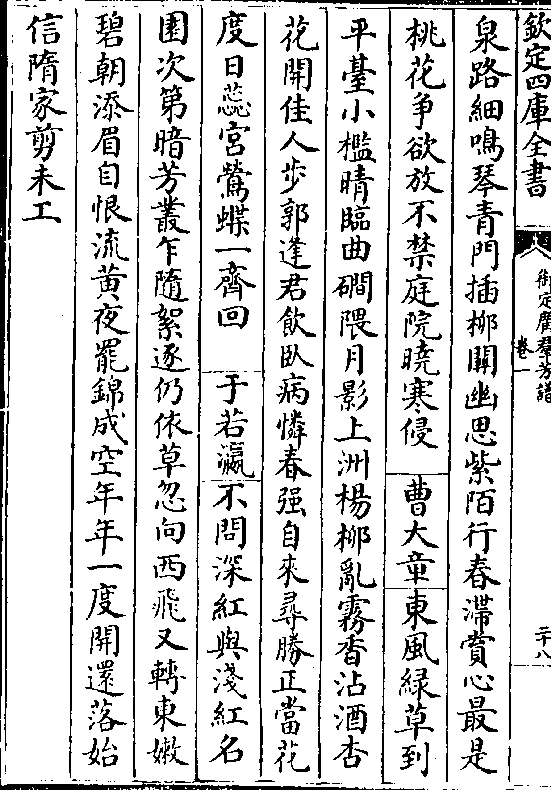 欽定四庫全書
御定廣羣芳譜
卷一
二十八
泉路細鳴琴青門插柳關幽思紫陌行春滯賞心最是
桃花争欲放不禁庭院曉寒侵曹大章東風緑草到
平臺小檻晴臨曲磵隈月影上洲楊柳亂霧香沾酒杏
花開佳人步郭逢君飲臥病憐春强自來尋勝正當花
度日蕊宮鶯蝶一齊回于若瀛不問深紅與淺紅名
園次第暗芳叢乍隨絮逐仍依草忽向西飛又轉東嫩
碧朝添眉自恨流黄夜罷錦成空年年一度開還落始
信隋家剪未工